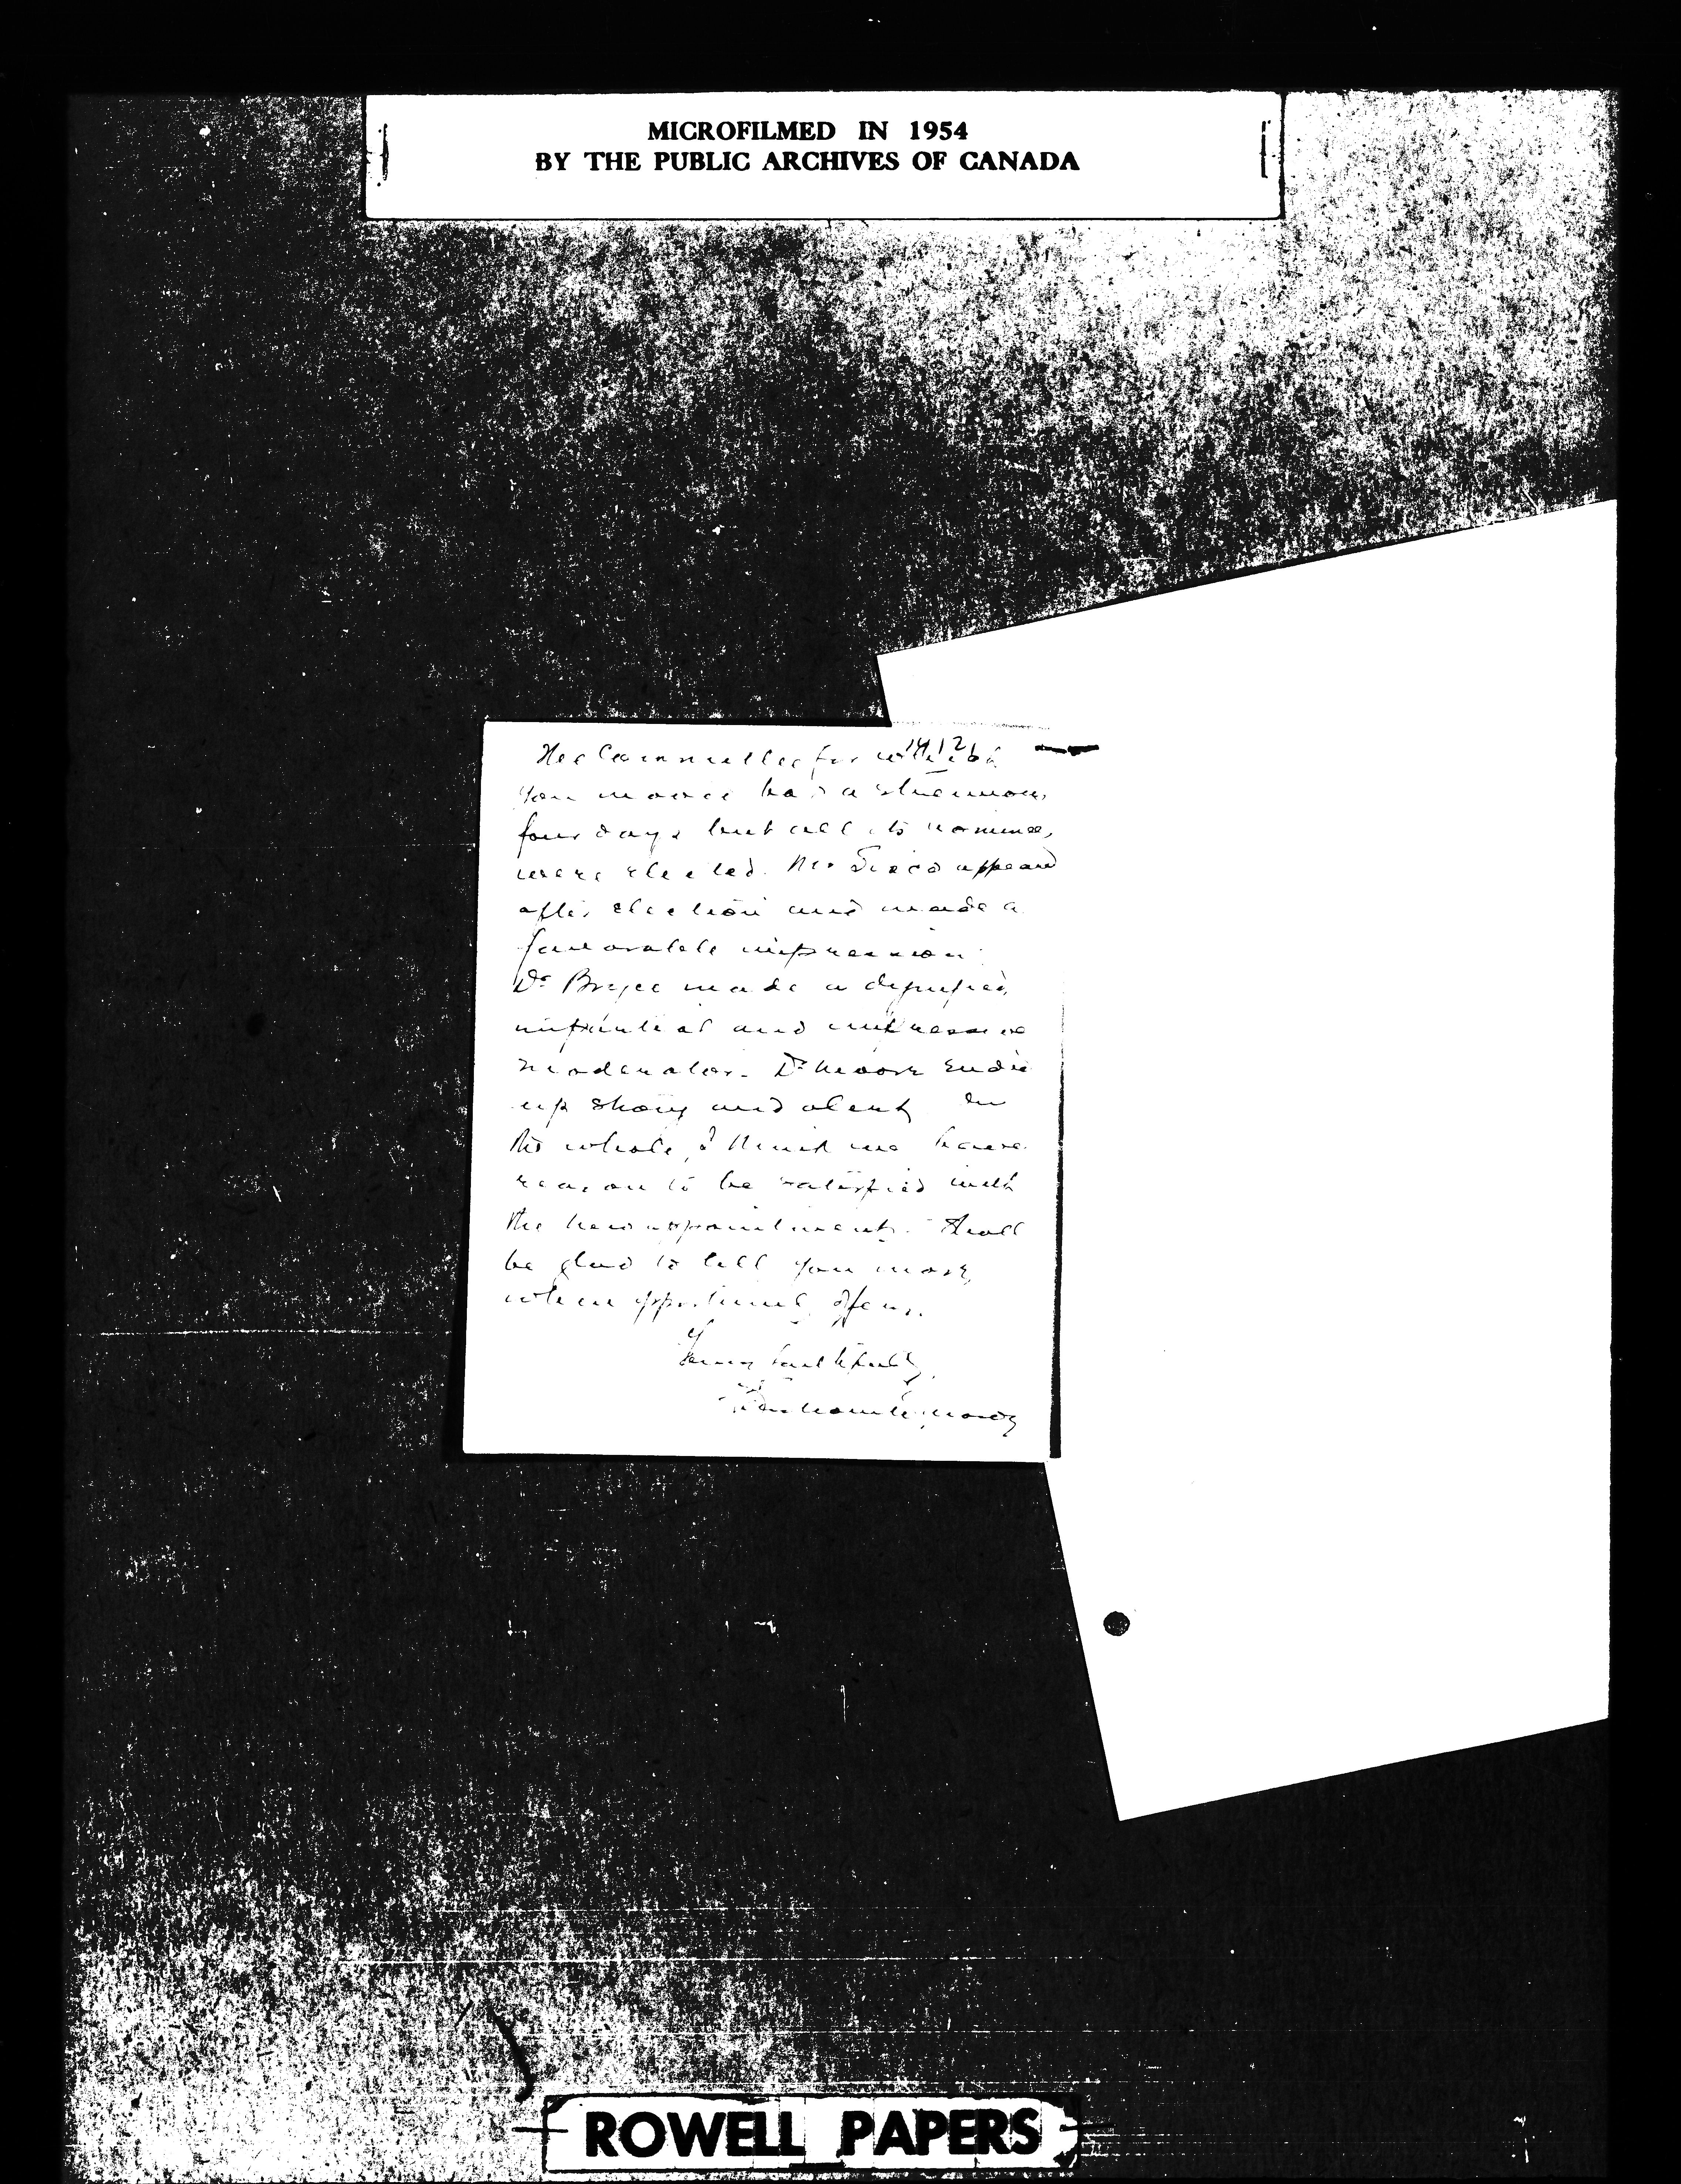 MICROFILMED IN 1954
BY THE PUBLIC ARCHIVES OF CANADA
The Committee for which
you moved had a strenuous
four days but all its nominees
were elected. Mr appeared
after election and made a
favorable impression.
Dr Bryce made a dignified,
impartial and impressive
moderator. Dr Moore ended
up strong and alert. On
the whole, I think we have
reason to be satisfied with
the new appointments. Shall
be glad to tell you more
when opportunity offers.
Yours faithfully,
ROWELL PAPERS